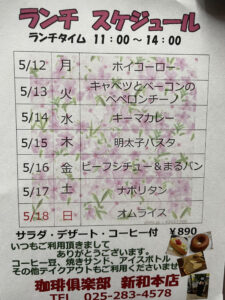 ランチ スケジュール
ランチタイム 11：00～14：00
5/12 月 ホイコーロー
5/13 火 キャベツとベーコンの
ペペロンチーノ
5/14 水 キーマカレー
5/15 木 明太子パスタ
5/16 金 ビーフシチュー＆まるパン
5/17 土 ナポリタン
5/18 日 オムライス
サラダ・デザート・コーヒー付 ¥890
いつもご利用頂きまして
ありがとうございます。
コーヒー豆、焼きサンド、アイスボトル
その他テイクアウトもご利用くださいませ
珈琲倶楽部 新和本店
TEL 025-283-4578